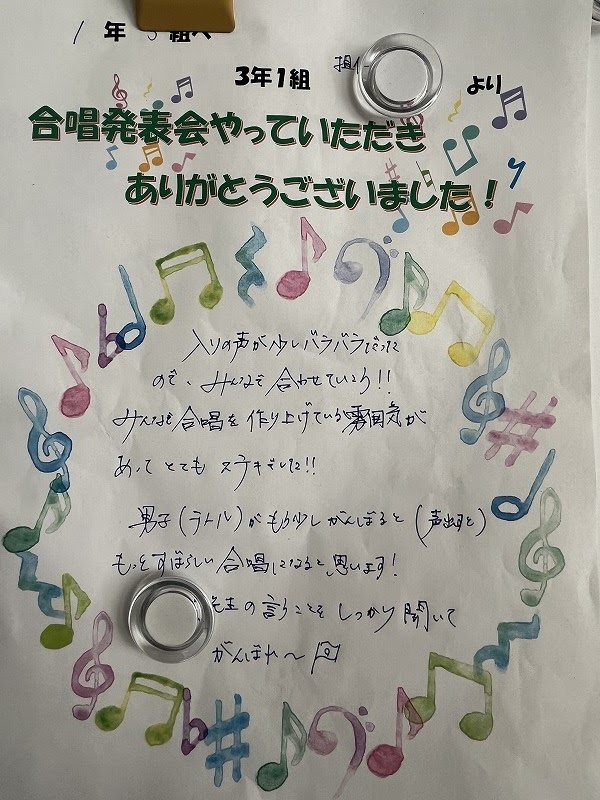 1年 組へ
3年1組 より
合唱発表会やっていただき
ありがとうございました！
入りの声が少しバラバラだった
ので、みんなで合わせていこう!!
みんなで合唱を作り上げている雰囲気が
あって とても ステキでした!!
男子(テノール)がもう少しがんばると(声出すと)
もっとすばらしい合唱になると思います!
の言うことをしっかり聞いて
がんばれ〜